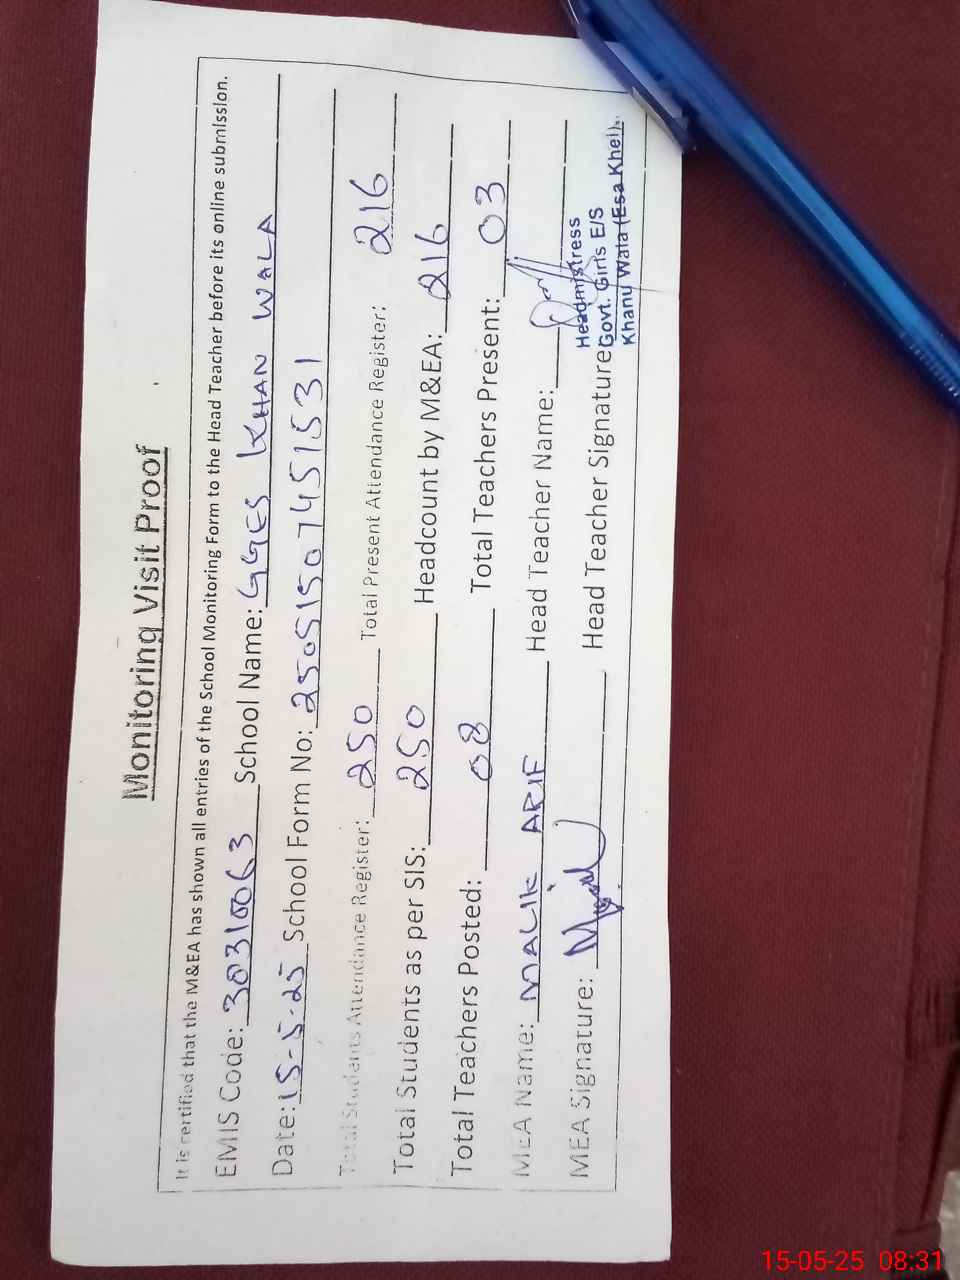 Monitoring Visit Proof
It is certified that the M&EA has shown all entries of the School Monitoring Form to the Head Teacher before its online submission.
EMIS Code: 30310063 School Name: GGES KHAN WALA
Date: 15-5-25 School Form No: 25051507451531
Total Students Attendance Register: 250 Total Present Attendance Register: 216
Total Students as per SIS: 250 Headcount by M&EA: 216
Total Teachers Posted: 08 Total Teachers Present: 03
MEA Name: MALIK ARIF Head Teacher Name:
MEA Signature: Head Teacher Signature
Headmistress
Govt. Girls E/S
Khanu Wala (Esa Khel).
15-05-25 08:31